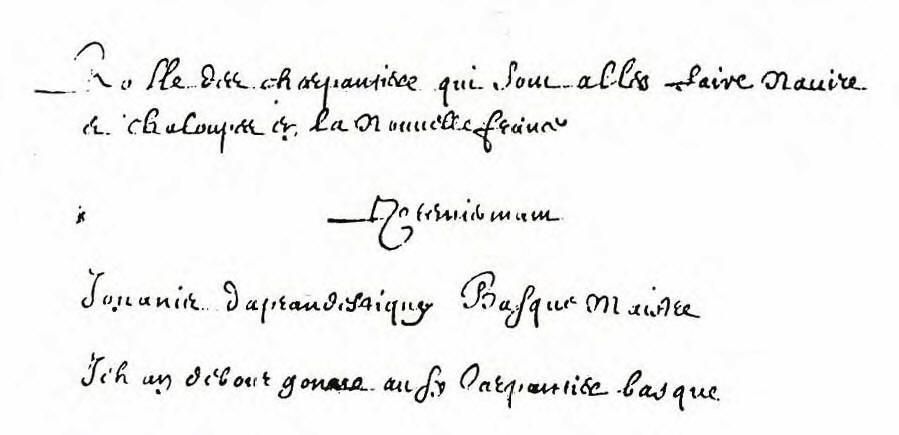 Rolle des charpantiers qui sont allés faire Navire
et chaloupes en la Nouvelle france
Premieremant
Jouanis Daprandestiguy Basque Maistre
Jehan aussy Carpantier basque